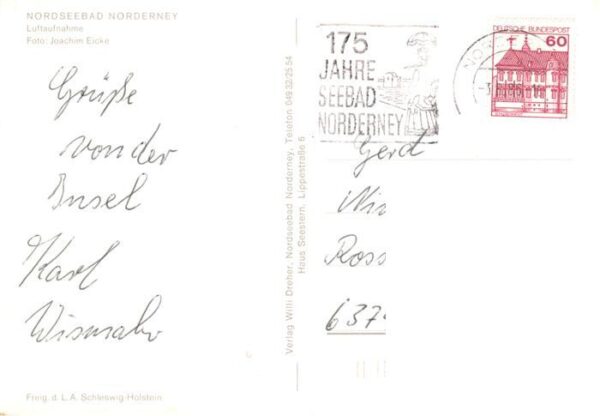 NORDSEEBAD NORDERNEY
Luftaufnahme
Foto: Joachim Eicke
Grüße
von der
Insel
Karl
Freig. d. L.A. Schleswig-Holstein
Verlag Willi Dreher, Nordseebad Norderney, Telefon 04932/25 54
Haus Seestern, Lippestraße 5
175
JAHRE
SEEBAD
NORDERNEY
DEUTSCHE BUNDESPOST
60
Gerd
Ross